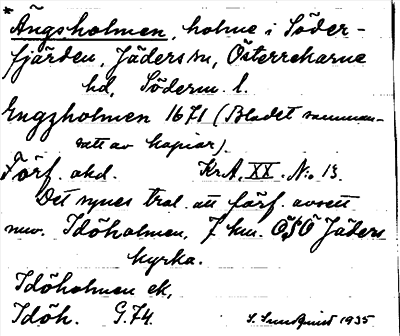 * Ängsholmen, holme i Söder-
fjärden, Jäders sn, Österrekarne
hd, Söderm. l.
Engzholmen 1671 (Bladet samman-
satt av kopior).
Förf. okd. KrA, XX. No. 13.
Det synes trol. att förf. avsett
nuv. Idöholmen, 7 km. ÖSÖ Jäders
kyrka.
Idöholmen ek,
Idöh. G.74. S. Sundquist 1935